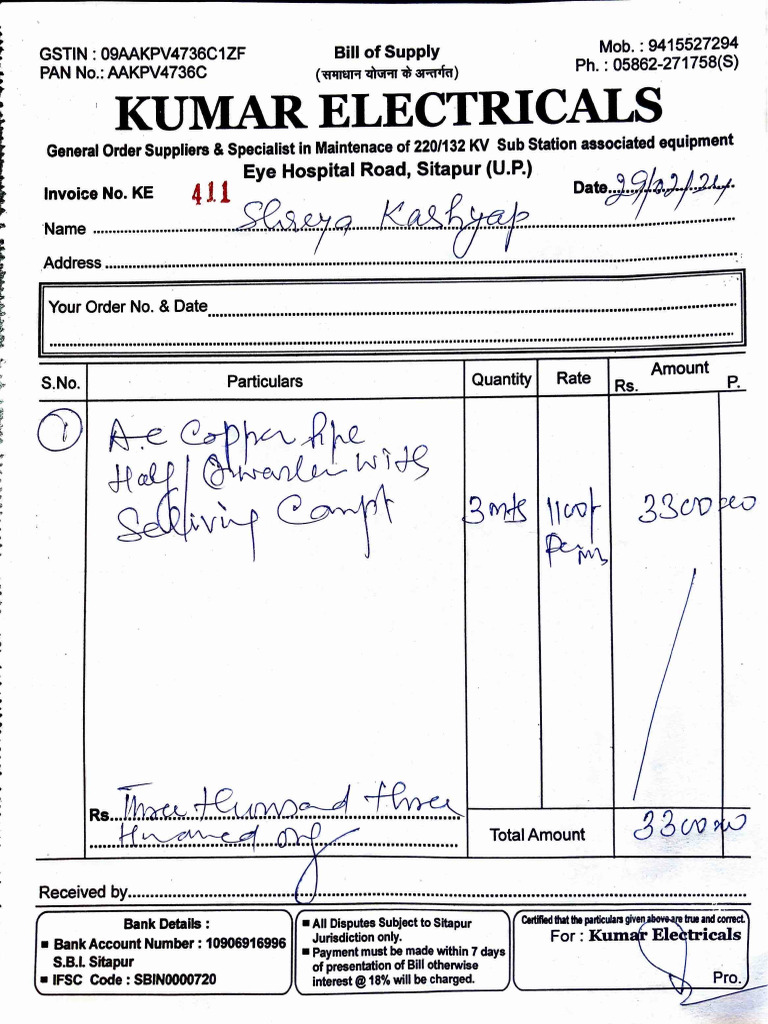 GSTIN : 09AAKPV4736C1ZF
PAN No.: AAKPV4736C
Bill of Supply
(समाधान योजना के अन्तर्गत)
Mob. : 9415527294
Ph. : 05862-271758(S)
KUMAR ELECTRICALS
General Order Suppliers & Specialist in Maintenace of 220/132 KV Sub Station associated equipment
Eye Hospital Road, Sitapur (U.P.)
Invoice No. KE 411
Date 29/02/24
Name Shreya Kashyap
Address
Your Order No. & Date
S.No. Particulars Quantity Rate Amount
Rs. P.
1 A.C Copper Pipe
Half/ With
3 mts 1100/- 3300 00
Per m
Rs. Three thousand three
Hundred only
Total Amount 3300 00
Received by
Bank Details :
Bank Account Number : 10906916996
S.B.I. Sitapur
IFSC Code : SBIN0000720
All Disputes Subject to Sitapur
Jurisdiction only.
Payment must be made within 7 days
of presentation of Bill otherwise
interest @ 18% will be charged.
Certified that the particulars given above are true and correct.
For : Kumar Electricals
Pro.